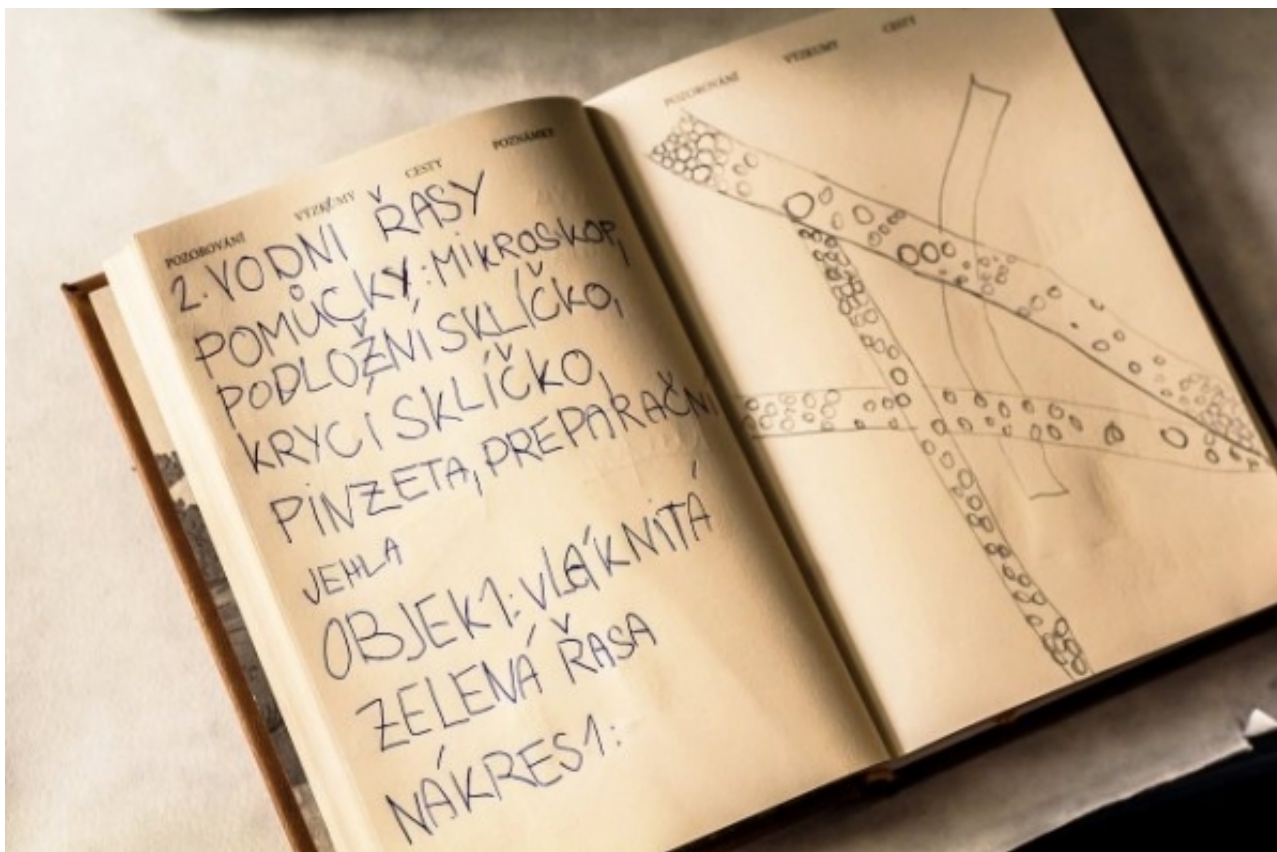 POZOROVÁNÍ VÝZKUMY CESTY POZNÁMKY
2. VODNI ŘASY
POMŮCKY: MIKROSKOP,
PODLOŽNÍ SKLÍČKO,
KRYCÍ SKLÍČKO,
PINZETA, PREPARAČNÍ
JEHLA
OBJEK1: VLÁKNITÁ
ZELENÁ ŘASA
NÁKRES1:
POZOROVÁNÍ VÝZKUMY CESTY